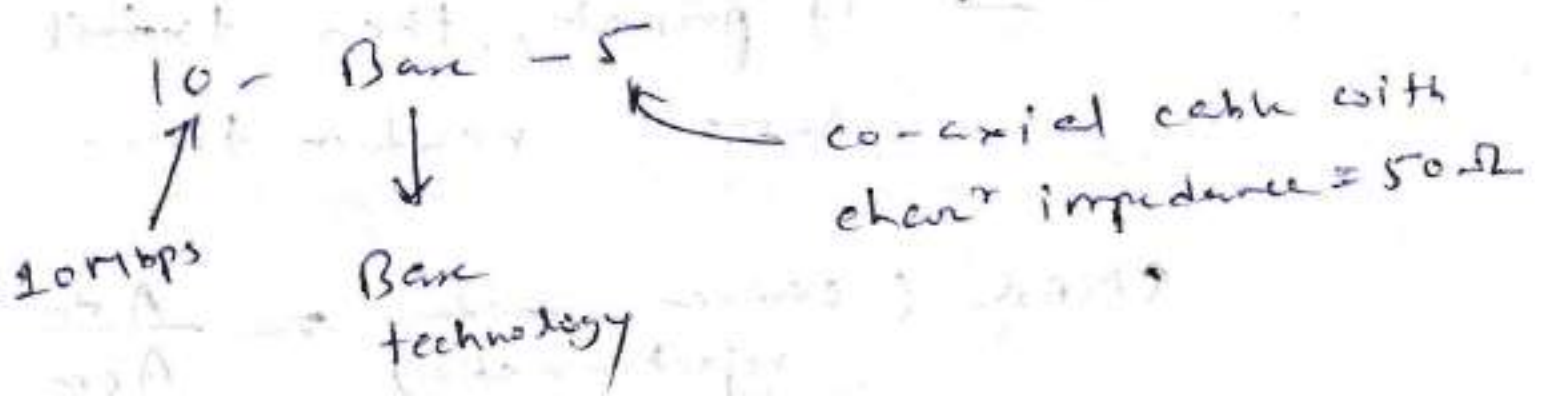 10 - Base - 5
co-axial cable with
charr impedance = 50Ω
10Mbps
Base
technology